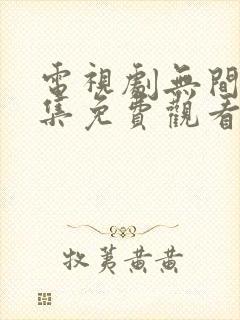 電視劇無間
集免費觀看
牧荑黃黃